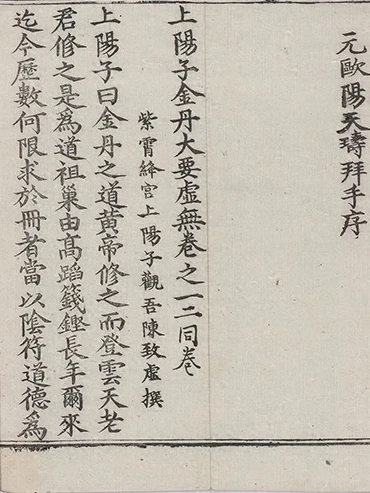 元歐陽天璹拜手序
上陽子金丹大要虛無卷之一二同卷
紫霄絳宮上陽子觀吾陳致虛撰
上陽子曰金丹之道黃帝修之而登雲天老
君修之是為道祖巢由高蹈籛鏗長年爾來
迄今歷數何限求於冊者當以陰符道德為